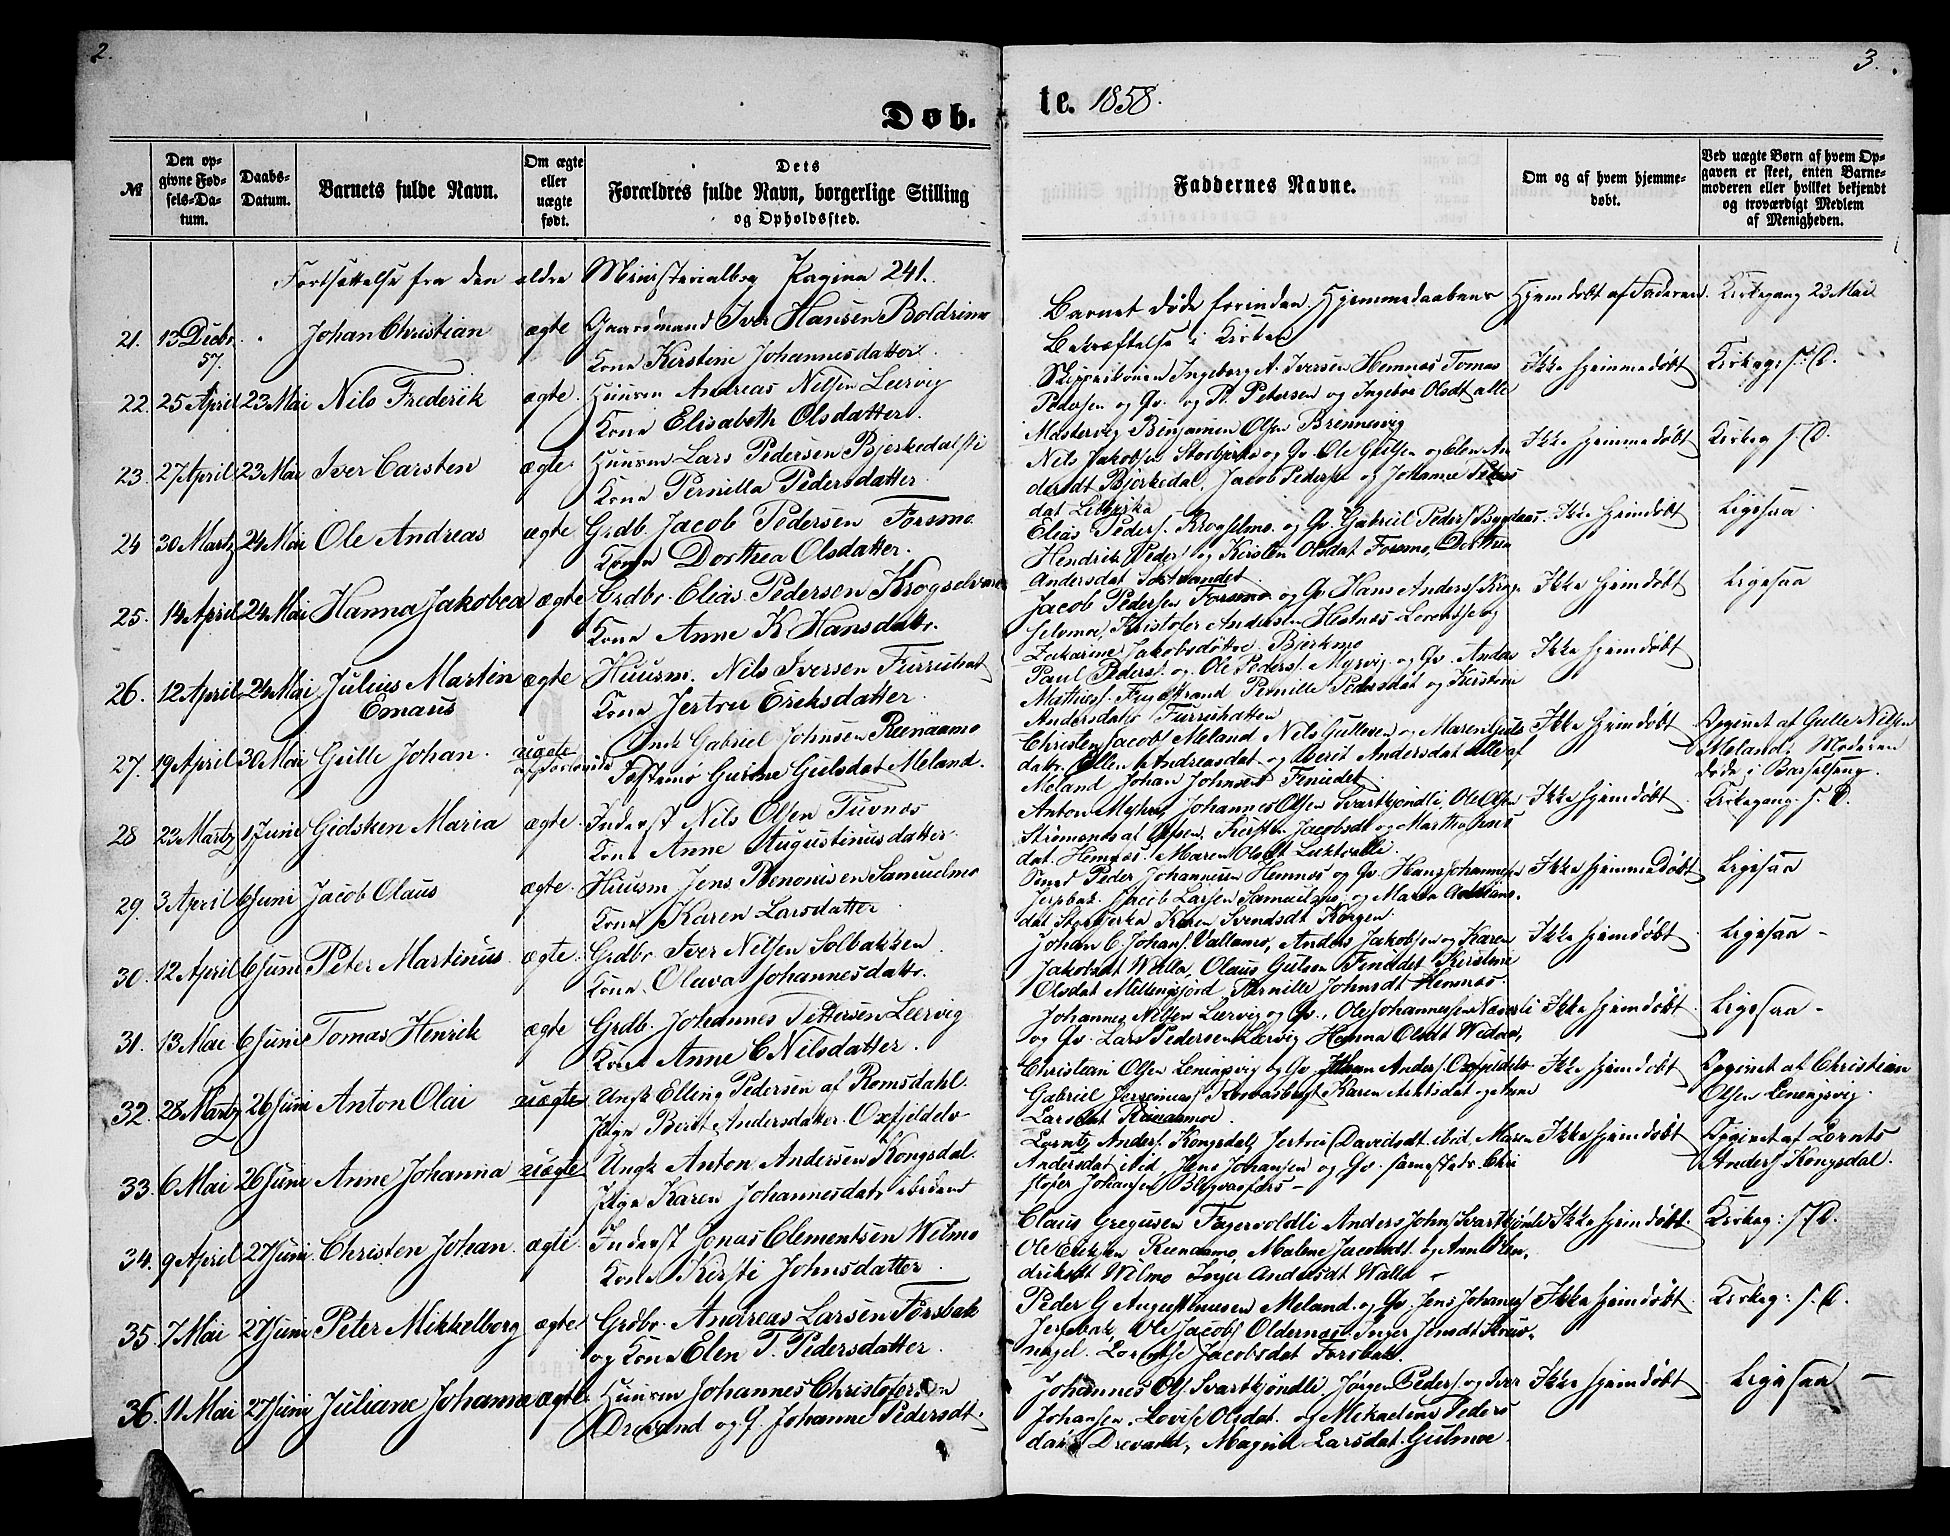 2.
3.
Døb-
te. 1858.
№
Den op-
givne Fød-
sels-Da-
tum.
Daabs-
Datum.
Barnets fulde Navn.
Om ægte
eller
uægte
født.
Dets
Forældres fulde Navn, borgerlige Stilling
og Opholdssted.
Faddernes Navne.
Om og af hvem hjemme-
døbt.
Ved uægte Børn af hvem Op-
gaven er skeet, enten Barne-
moderen eller hvilket bekjendt
og troværdigt Medlem
af Menigheden.
Fortsættelse fra den ældre Ministerialbog Pagina 241.
21. 13 Decbr 57. Johan Christian ægte Gaardmand Iver Hansen Boldrimo
Kone Kirstine Johannesdatter.
Barnet døde forinden Hjemmedaabens
Bekræftelse i Kirken
Hjemdøbt af Faderen. Kirkegang 23 Mai
22. 25 April 23 Mai Nils Frederik ægte. Huusm Andreas Nilsen Leervig
Kone Elisabeth Olsdatter.
Ingeborg A. Iversen Hemnæs Tomas
Pedersen og Qv. og P. Petersen og Ingebor Olsdt alle
Mastervig Benjamin Olsen Brennesvig
Ikke hjemmedøbt Kirkeg: s. D.
23. 27 April 23 Mai Iver Carsten ægte. Huusm Lars Pedersen Bjerkedal
Kone Pernilla Pedersdatter.
Nils Jakobsen Storbjerka og Qv Ole Gulsen og Elen An
dersdt Bjerkedal, Jacob Pedersen og Johanne Peders
dat
Ikke hjemmedøbt Kirkeg s. D.
24 30 Martz 24 Mai Ole Andreas ægte Grdb. Jacob Pedersen Forsmo
Kone Dorthea Olsdatter.
Elias Peders. og Qv. Gabriel Peders
Hendrik Peders og Kirsten Olsdat Forsmo, Dorthea
Andersdat
Ikke hjemdøbt Ligesaa.
25. 14 April 24 Mai Hanna Jakobea ægte Grdbr. Elias Pedersen Krogselvmo
Kone Anne K Hansdatr.
Jacob Pedersen Forsmo og Qv Hans Anderss Krog
selvmoe, Kristofer Andersen Hestnes Lorentse og
Zakarine Jakobsdøttre Bjerkmo
Ikke hjemdøbt Ligesaa
26. 12 April 24 Mai Julius Martin
Emaus
ægte Huusm. Nils Iversen Furruhat
Kone Jertru Eriksdatter.
Paul Peders. og Ole Peders. Myrvig og Qv. Andas
Mathiass. Pernille Pedersdat og Kirstine
Andersdatr Furruhatten
Ikke hjemdøbt
27. 19 April 30 Mai Gulle Johan. uægte
Gabriel Johnsen Reenaamo
Gurine Gulsdat Meland.
Christen Jacobs Meland Nils Gullesen og Maren Guls
datr. Ellen Andreasdat og Berit Andersdat alle af
Meland Johan Johnsen Finiedet
Ikke hjemdøbt Opgivet af Gulle Nilsen
Meland. Moderen
døde i Barselseng.
28 23 Martz 1 Juni Gidsken Maria ægte. Inderst Nils Olsen Tuvnæs
Kone Anne Augustinusdatter.
Anton Myhre, Johannes Olsen Svartkjøndli, Ole Olsen
Kirsten Jacobsdt og Martha Jens
dat. Hemnæs. Maren Olsdt Luktvalli.
Ikke hjemdøbt. Kirkegang. s. D.
29. 3 April 6 Juni Jacob Olaus ægte. Huusm Jens Benonisen Samuelmo
Kone Karen Larsdatter.
Smed Peder Johannesen Hemnæs og Qv. Hans Johannesen
Jerpbak. Jacob Larsen Samuelmo, og Maria
dat Storbjerka Karen Svendsdt Korgen.
Ikke hjemmedøbt Ligesaa
30. 12 April 6 Juni Peter Martinus ægte. Grdbr Iver Nilsen Solbakken
Kone. Olava Johannesdatr.
Johan C. Johans. Vallamo, Anders Jakobsen og Karen
Jakobsdt Walla, Olaus Gulsen Finiedet Kirstine
Olsdat Millengsjord Pernille Johnsdt Hemnæs.
Ikke hjemdøbt. Ligesaa -
31. 13 Mai 6 Juni Tomas Henrik ægte Grdb. Johannes Pettersen Leervig
Kone Anne C Nilsdatter.
Johannes Nilsen Leervig og Qv., Ole Johannessen
og Qv. Lars Pedersen Leervig Hanna Olsdt
Ikke hjemdøbt. Ligesaa -
32. 28 Martz 26 Juni Anton Olai uægte Ungk Elling Pedersen af Romsdahl.
Pige Berit Andersdatter Oxfjeldelv
Christian Olsen Leningsvig og Qv Johan Anders. Oxfjeldelv
Gabriel Karen og Anne
Larsdat
Ikke hjemdøbt Opgivet af Christian
Olsen Leningsvig.
33. 6 Mai 26 Juni Anne Johanna uægte Ungk Anton Andersen Kongsdal.
Pige Karen Johannesdatr ibidem
Lorntz Anders. Kongsdal, Jertru Davidsdt ibid. Maren
Andersdat ibid Jens Johansen og Qv. sammesteds. Chri
stofer Johansen
Ikke hjemdøbt Opgivet af Lornts
Anders Kongsdal.
34. 9 April 27 Juni. Christen Johan. ægte. Inderst Jonas Clementsen Wilmo
Kone Kirsti Johnsdatter.
Claus Gregusen Fagervoldli Anders Johns Svartkjønli
Ole Eriksen Reenaamo, Malene Jacobsdt. og Ane Hen
driksdt Wilmo Inger Andersdt Walla -
Ikke hjemdøbt. Kirkeg: s. D.
35 7 Mai 27 Juni Peter Mikkelborg ægte. Grdbr. Andreas Larsen Forsbak
og Kone Elen T. Pedersdatter.
Peder G Augustinusen Meland og Qv. Jens Johans
Jerpbak, Ole Jacobs Oldernæs. Inger Jensdt
nagel. Lorentse Jacobsdat Forsbak.
Ikke hjemdøbt. Kirkeg: s. D.
36. 11 Mai 27 Juni Juliane Johanna ægte Huusm Johannes Christofersen
Drevand og Q. Johanne Pedersdt.
Johannes Ols Svartkjøndli Jørgen Peders og Iver
Johansen. Lovise Olsdat. og Mekaeline Peders
datr Drevand, Magnil Larsdat. Gulmoe.
Ikke hjemdøbt Ligesaa -